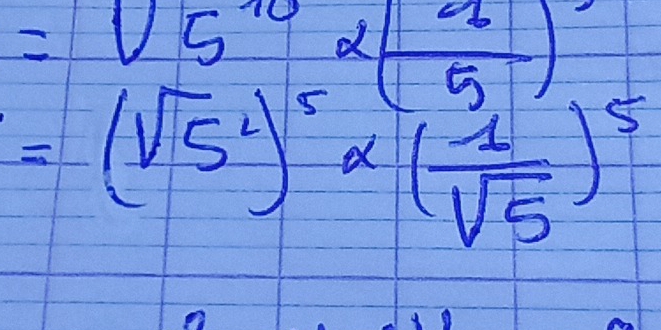 = √5^10 × (1/5)
= (√5²)^5 × (1/√5)^5